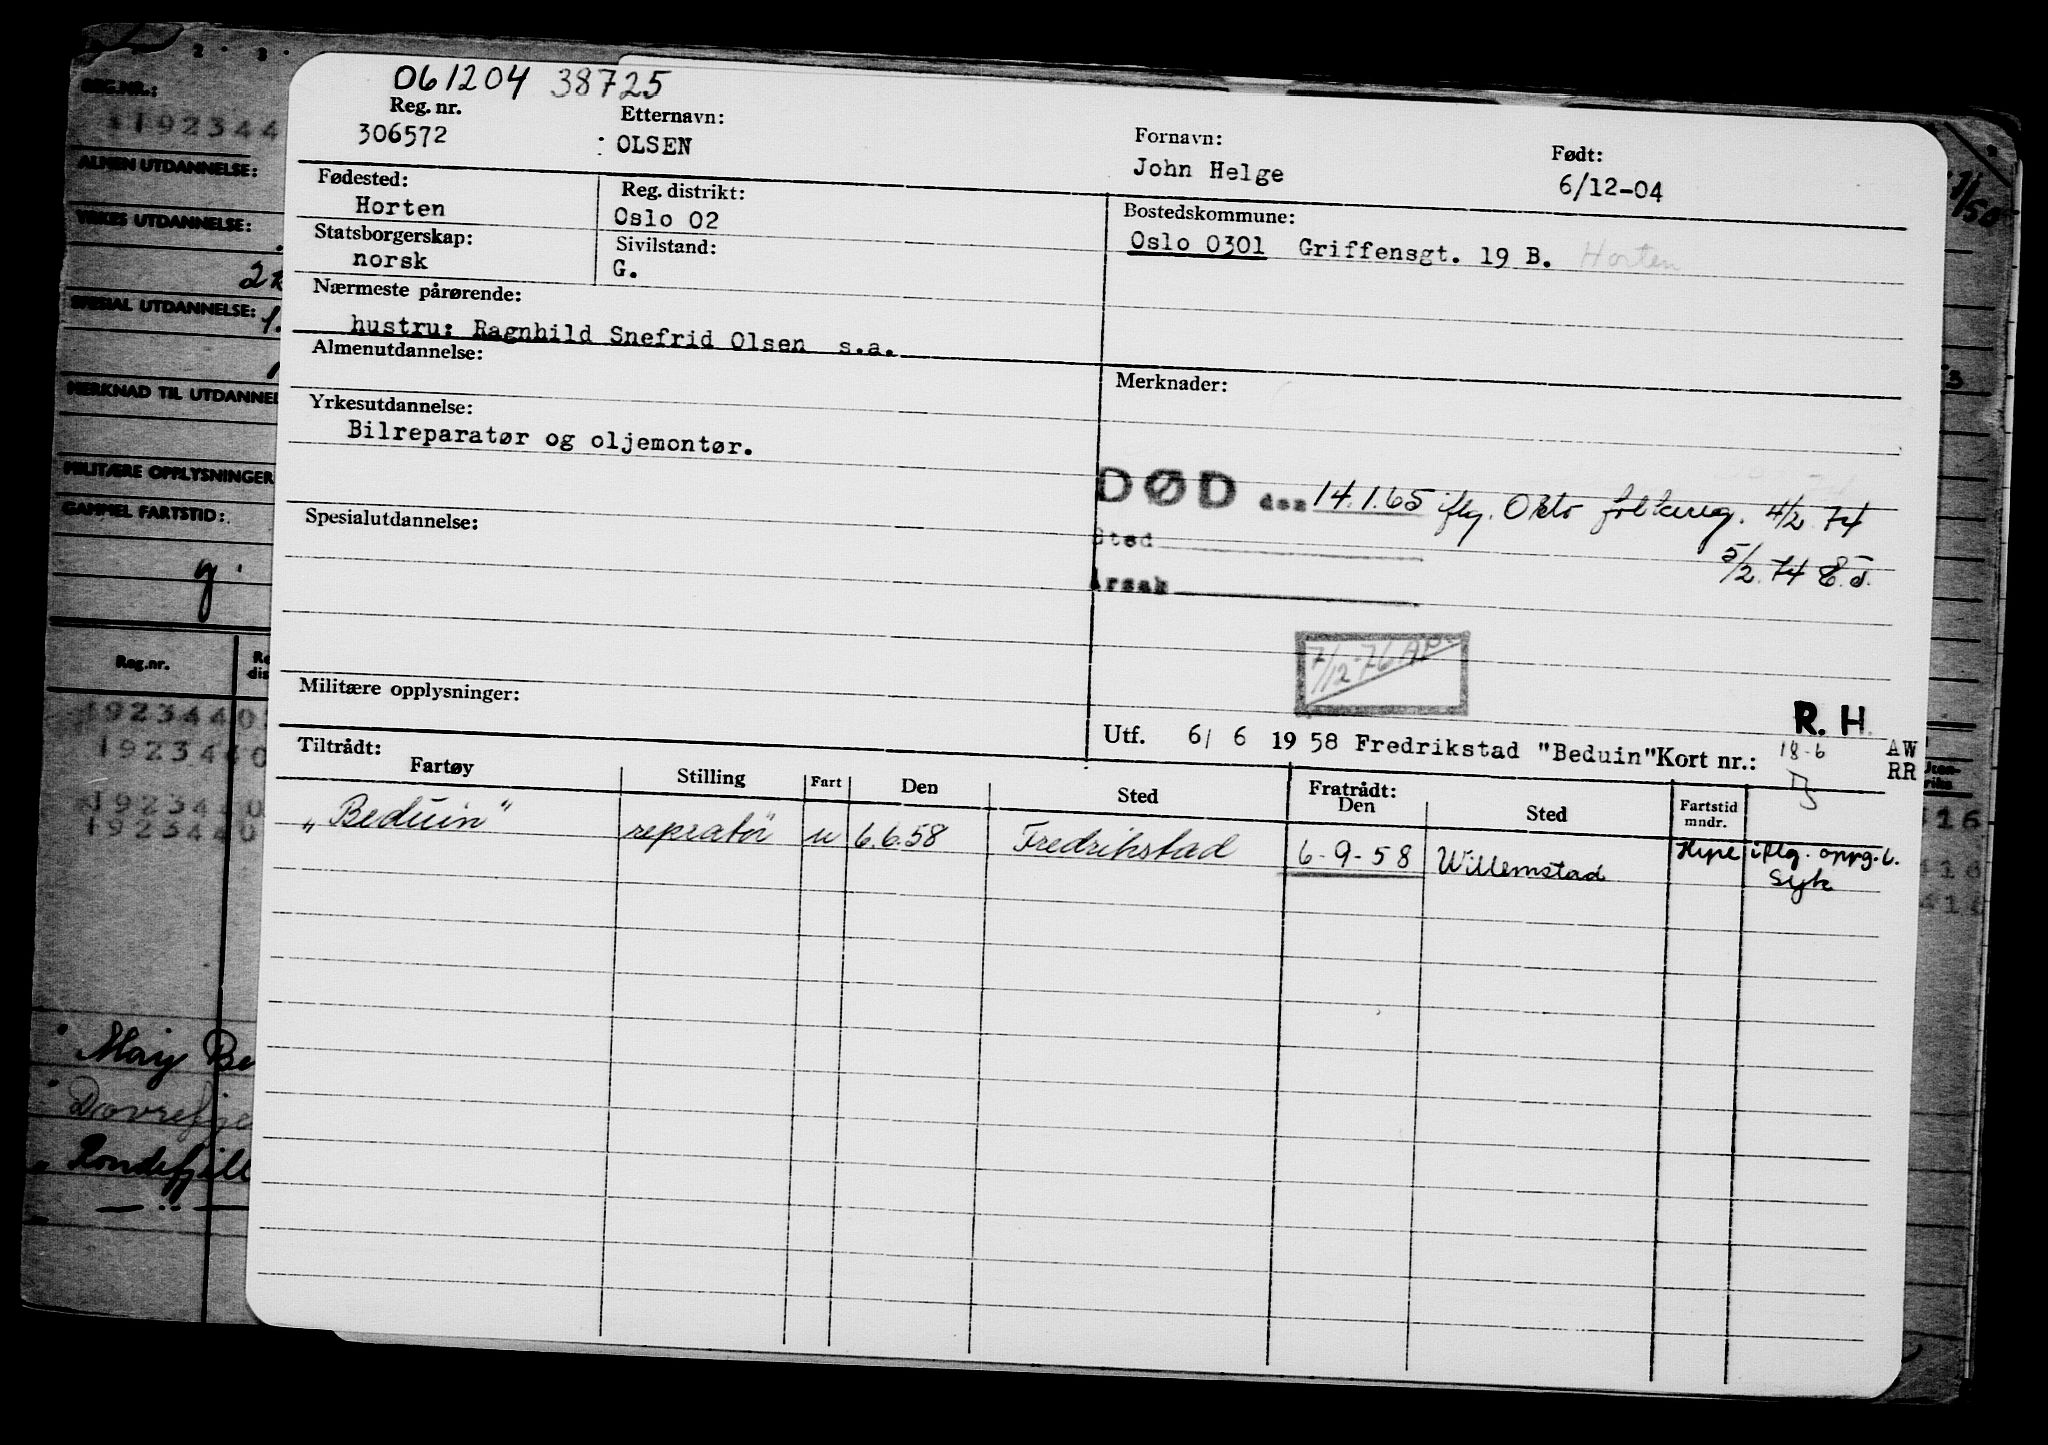 061204 38725
Reg. nr. Etternavn: Fornavn: Født:
306572 : OLSEN John Helge 6/12-04
Fødested: Reg. distrikt: Bostedskommune:
Horten Oslo 02 Oslo 0301 Griffensgt. 19 B. Horten
Statsborgerskap: Sivilstand:
norsk G.
Nærmeste pårørende:
hustru: Ragnhild Snefrid Olsen s.a.
Almenutdannelse: Merknader:
Yrkesutdannelse:
Bilreparatør og oljemontør.
DØD den 14.1.65 iflg. Oslo folkereg. 4/2 74
Spesialutdannelse: Sted
5/2.74
Årsak
7/12-76
Militære opplysninger:
R. H.
Utf. 6/ 6 19 58 Fredrikstad "Beduin" Kort nr.: 18-6 AW
RR
Tiltrådt: Fratrådt:
Fartøy Stilling Fart Den Sted Den Sted Fartstid mndr.
"Beduin" reparatør u 6.6.58 Fredrikstad 6-9-58 Willemstad Hyre iflg. oppg. b.
Syk
REG.NR.:
1192344
ALMEN UTDANNELSE:
YRKES UTDANNELSE:
SPESIAL UTDANNELSE:
MERKNAD TIL UTDANNEL
MILITÆRE OPPLYSNINGER
GAMMEL FARTSTID:
g.
Reg.nr. Re dis
1923440
1923440
1923440
1923440
Mary Be
Dovrefje
Rondefjell
416
416
416